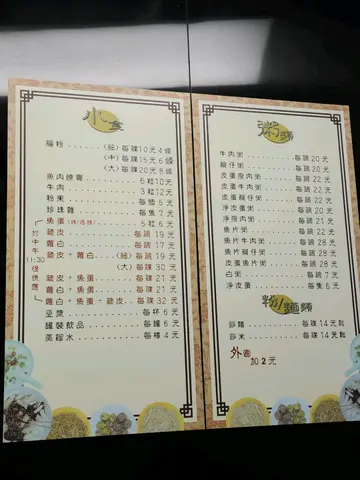 小食
腸粉 (細) 每碟10元4條
(中) 每碟15元6條
(大) 每碟20元8條
魚肉燒賣 6粒10元
牛肉 3粒12元
粉果 每個5元
珍珠雞 每隻7元
魚蛋 每碗19元
蘿皮 每碗19元
蘿白 每碗17元
蘿皮+蘿白 (細) 每碗19元
(大) 每碟30元
蘿皮+魚蛋 每碟21元
蘿白+魚蛋 每碟21元
蘿白+魚蛋+蘿皮 每碟32元
於中午11:30後供應
豆漿 每杯6元
罐裝飲品 每罐6元
蒸餾水 每樽4元
粥類
牛肉粥 每碗20元
及仔粥 每碗20元
皮蛋瘦肉粥 每碗22元
皮蛋牛肉粥 每碗22元
淨瘦肉粥 每碗20元
魚片粥 每碗20元
魚片牛肉粥 每碗22元
皮蛋魚片粥 每碗22元
白粥 每碗7元
淨皮蛋 每隻6元
粉/麵類
淨麵 每碟14元起
淨米 每碟14元起
外賣加2元